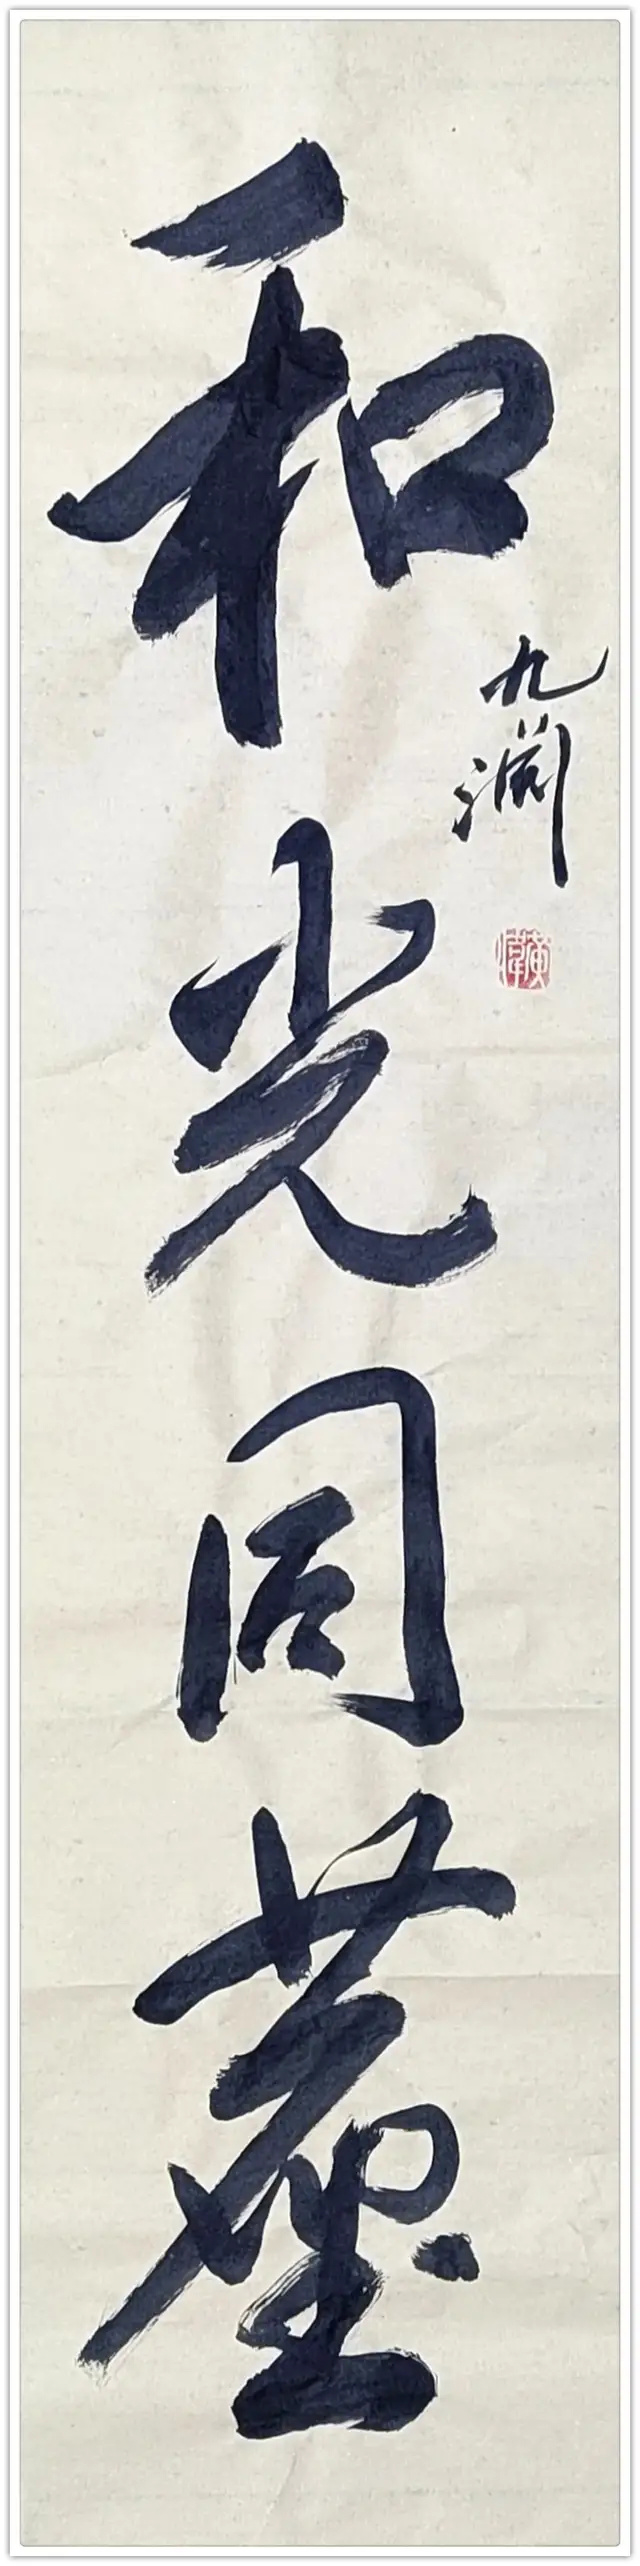 和光同塵
九